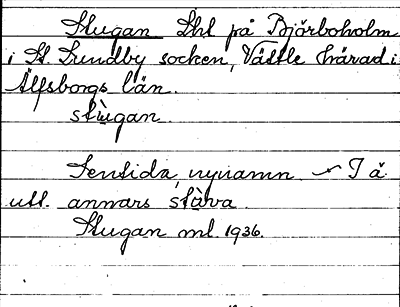 Stugan Lht på Björboholm
i St. Lundby socken, Vättle härad i
Älfsborgs län.
stùgan
Sentida nynamn. I ä
utt. annars stàva
Stugan ml. 1936.